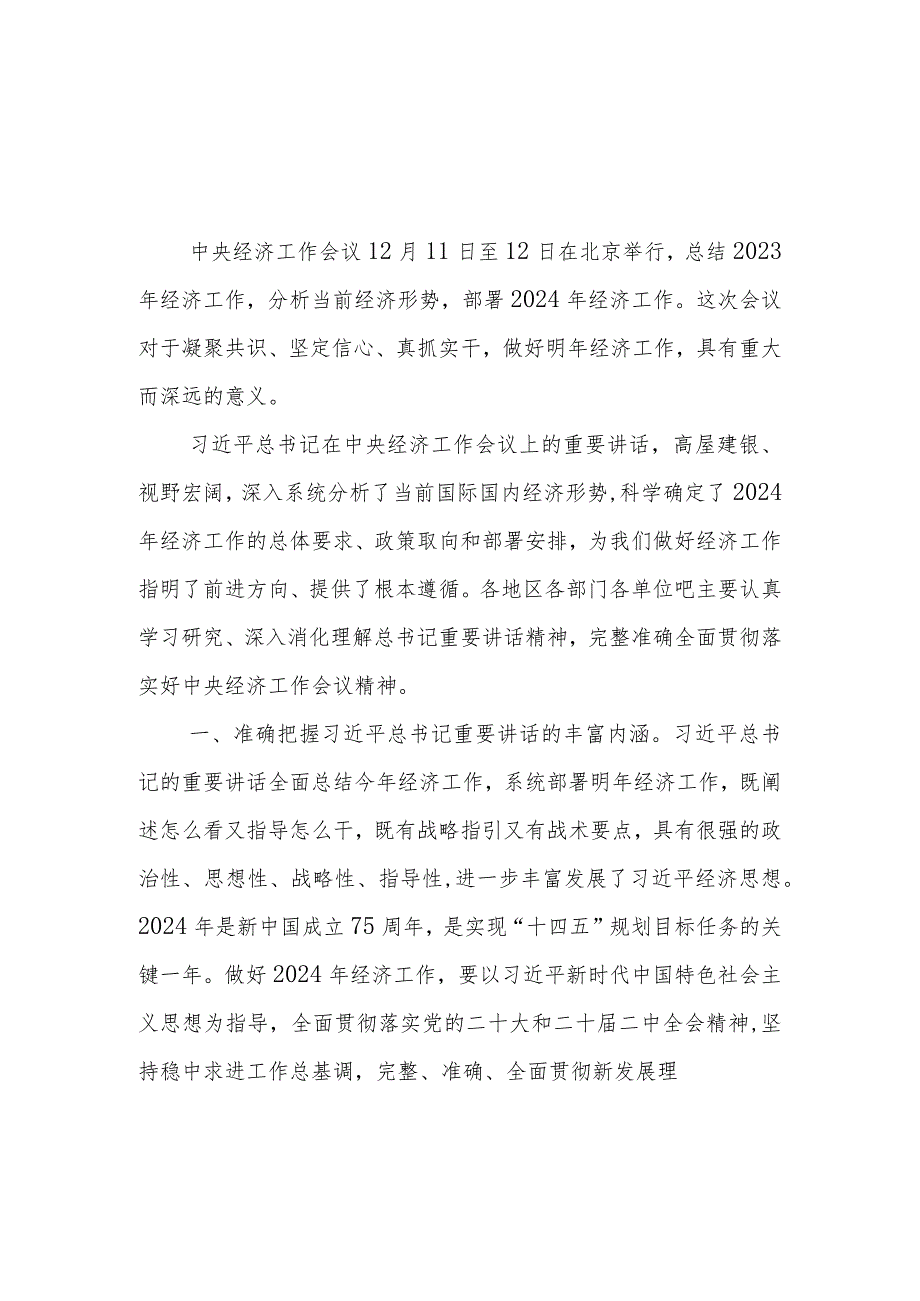 中央经济工作会议12月11日至12日在北京举行，总结2023
年经济工作，分析当前经济形势，部署2024年经济工作。这次会议
对于凝聚共识、坚定信心、真抓实干，做好明年经济工作，具有重大
而深远的意义。
习近平总书记在中央经济工作会议上的重要讲话，高屋建银、
视野宏阔，深入系统分析了当前国际国内经济形势,科学确定了2024
年经济工作的总体要求、政策取向和部署安排，为我们做好经济工作
指明了前进方向、提供了根本遵循。各地区各部门各单位吧主要认真
学习研究、深入消化理解总书记重要讲话精神，完整准确全面贯彻落
实好中央经济工作会议精神。
一、准确把握习近平总书记重要讲话的丰富内涵。习近平总书
记的重要讲话全面总结今年经济工作，系统部署明年经济工作，既阐
述怎么看又指导怎么干，既有战略指引又有战术要点，具有很强的政
治性、思想性、战略性、指导性,进一步丰富发展了习近平经济思想。
2024年是新中国成立75周年，是实现“十四五”规划目标任务的关
键一年。做好2024年经济工作，要以习近平新时代中国特色社会主
义思想为指导，全面贯彻落实党的二十大和二十届二中全会精神,坚
持稳中求进工作总基调，完整、准确、全面贯彻新发展理